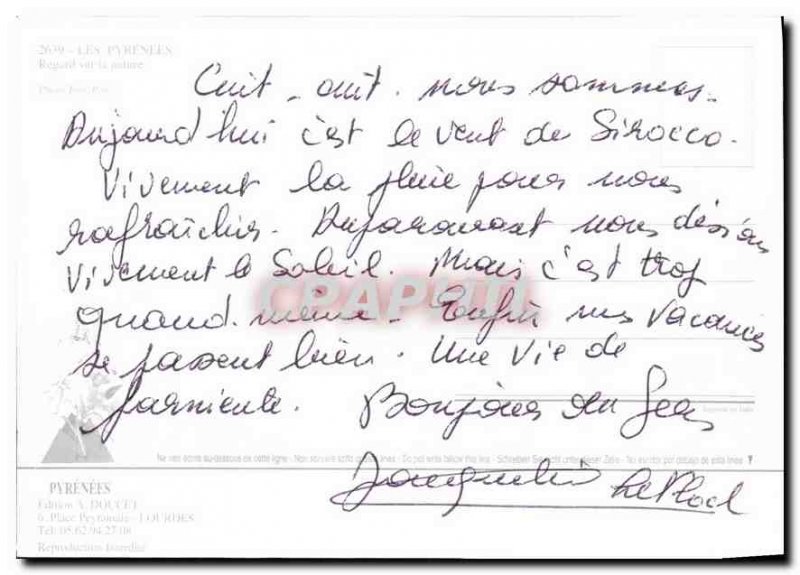 2639 - LES PYRÉNÉES
Regard sur la nature
Cuit - cuit - nous sommes.
Aujourd'hui c'est le vent de Sirocco.
Vivement la pluie pour nous
rafraîchir. Auparavant nous disions
Vivement le Soleil. Mais c'est trop
quand même. Enfin nos vacances
se passent bien. Une vie de
farniente. Bonjour au
Ne rien écrire au-dessous de cette ligne - Do not write below this line - No escribir por debajo de esta línea
PYRÉNÉES
Edition A. DOUCET
6, Place Peyramale - LOURDES
Tél: 05.62.94.27.08
Reproduction Interdite
CPAPHIL